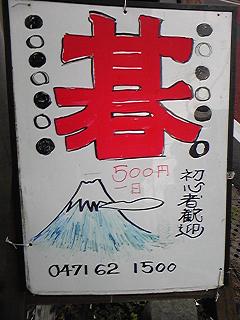 碁。
500円
一日
初心者歓迎
0471 62 1500